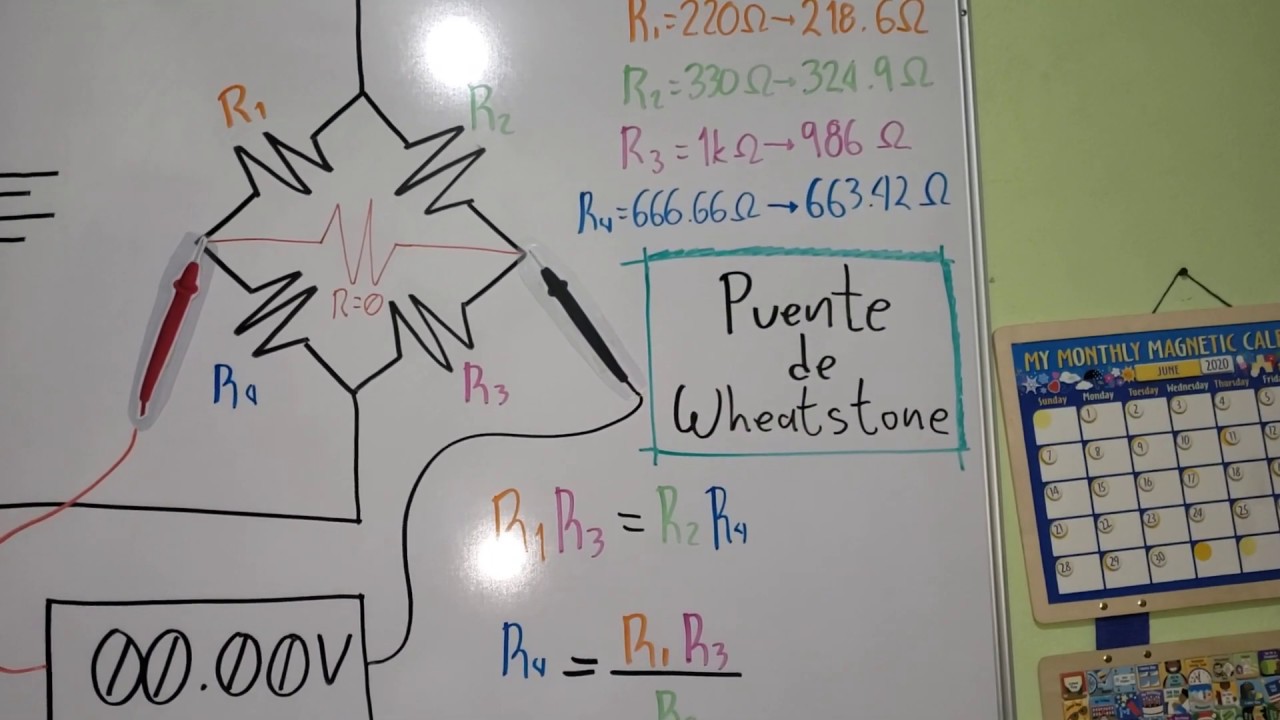 R1=220Ω→218.6Ω
R2=330Ω→324.9Ω
R3=1kΩ→986Ω
R4=666.66Ω→663.42Ω
R1
R2
R=0
R4
R3
Puente
de
Wheatstone
R1R3=R2R4
R4=R1R3
00.00V
MY MONTHLY MAGNETIC CALE
JUNE 2020
Sunday Monday Tuesday Wednesday Thursday Frid
1 2 3 4 5
7 8 9 10 11 12
14 15 16 17 18
21 22 23 24 25
28 29 30